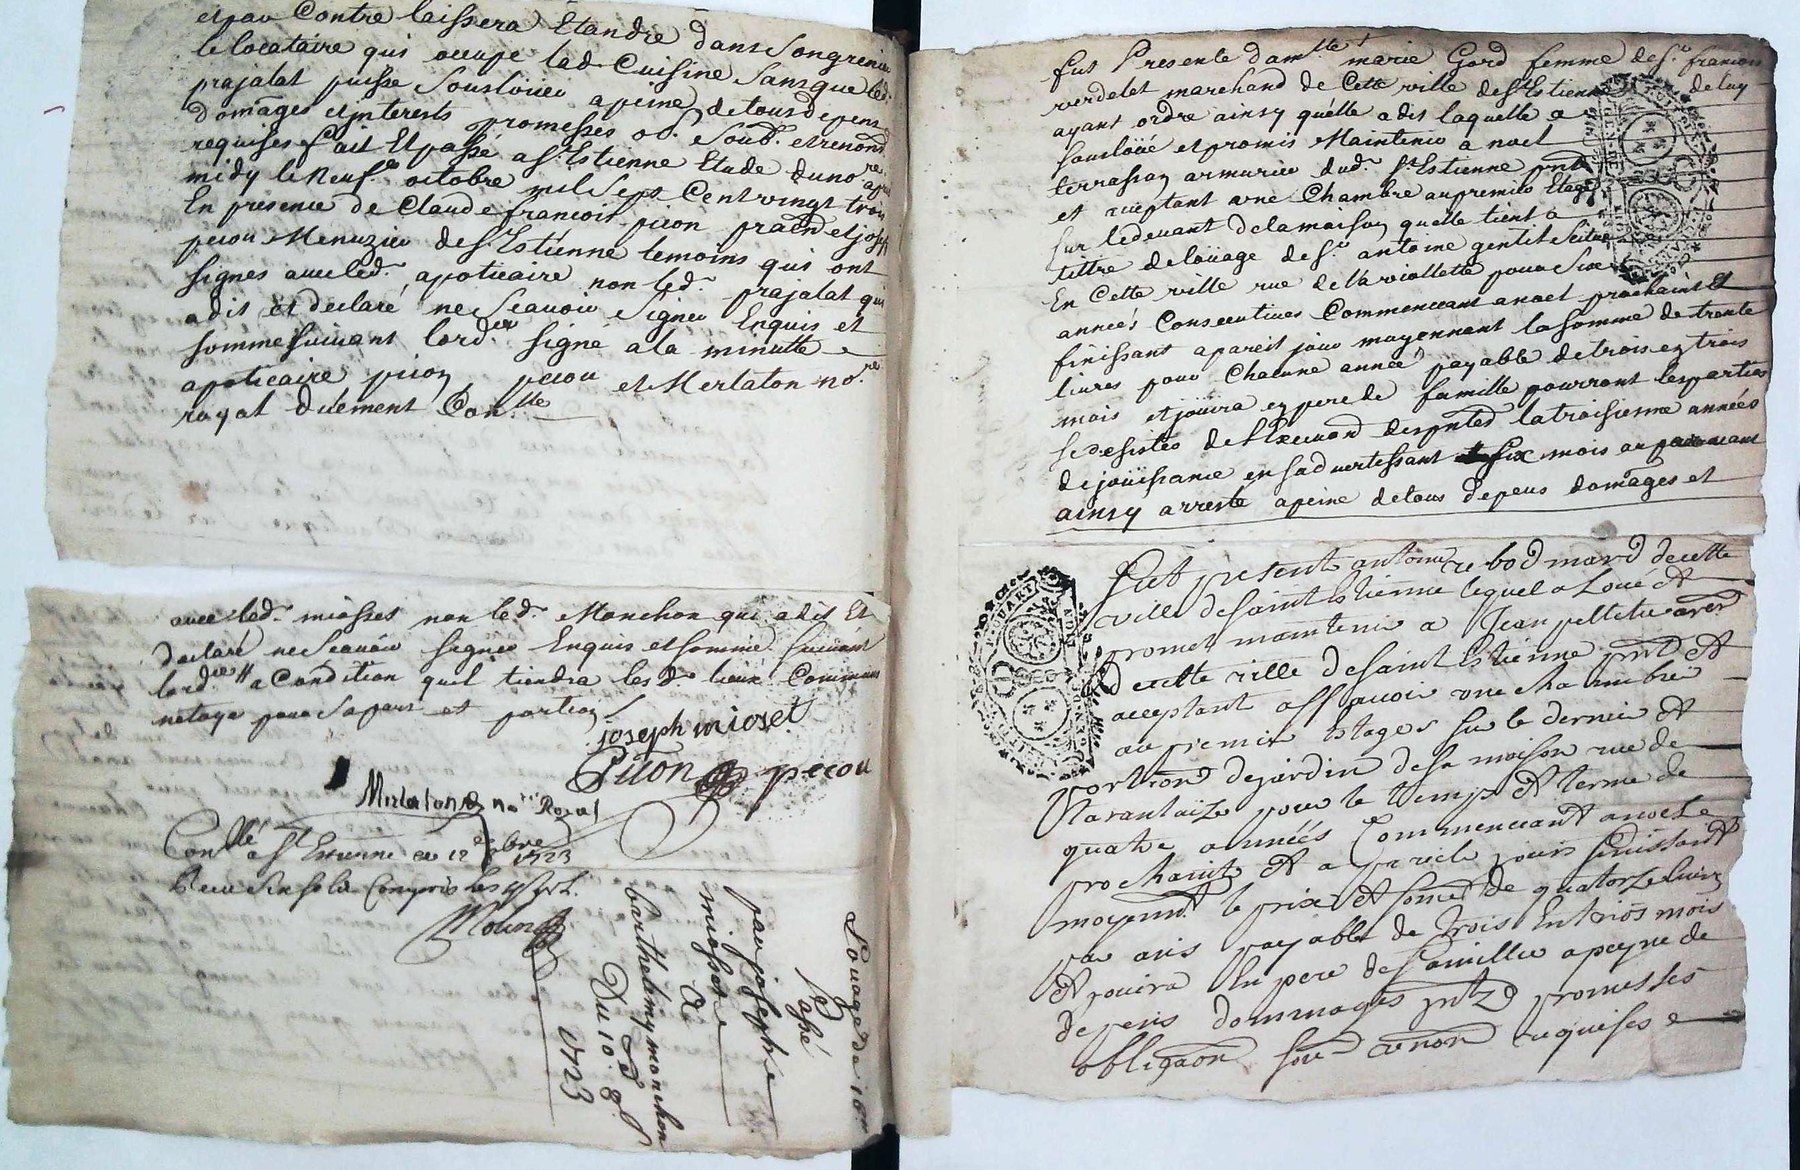 et par Contre laissera Etandre dans Son grenier
le locataire qui occupe lad. Cuisine Sans que led.
prajalat puisse Souslöüer apeine de tous depens
domages et jnterests promesses ob. Soub. et renond
requises fait Et passé a St. Estienne Etude du no.re
midy le Neuf.e octobre mil Sept Cent vingt trois
En presence de Claude francois picon et joseph
pecou Menuzier de St. Estienne temoins qui ont
signes avec led. apoticaire non led. prajalat qui
a dit Et declaré ne Scavoir Signer Enquis et
sommé suivant lord. signé ala minutte
apoticaire picon pecou et Merlaton no.re
royal duement Con.lle
avec led. miosset non led. Monchon qui a dit Et
declaré ne Scavoir Signer Enquis et sommé suivant
lord. a Condition quil tiendra lesd. lieux Communs
netoye pour Sa part et portion
joseph mioset
Piton pecou
Merlaton no.re Royal
Con.llé a St. Estienne ce 12 8bre 1723
Molin
Louage de
Passé
par joseph
miosset
A
barthelemy monchon
Du 10. 8b.
1723
fut Presente dam.lle marie Gord femme de Sr. francois
verdelet marchand de Cette ville de St. Estienne de luy
ayant ordre ainsy quélle a dit laquelle a
souslöüé et promis Maintenir a noel
terrasson armurier dud. St. Estienne pnt.
et acceptant une Chambre au premier Etage
sur ledevant dela maison quelle tient a
tittre delöüage de Sr. antoine gentil Scituée
En Cette ville rue de la violette pour Six
années Consecutives Commencant a noel prochain Et
finissant a pareil jour moyennant la somme de trente
livres pour Chacune année payable de trois en trois
mois et jöüira en pere de famille pourront les parties
se desister de la troisienne années
de jöüissance en sadvertissant six mois auparavant
ainsy arresté apeine de tous depens domages et
Fut present antoine rebod mard de cette
ville de Saint Estienne lequel a Loué Et
promet maintenir a Jean pelletier
De cette ville de Saint Estienne pnt Et
acceptant assavoir une chambre
au premier Estages Sur le dernier Et
portion de jardin de sa maison rue de
tarantaize pour le temps Et terme de
quatre années Commencant a noel
prochaint Et a pareil jour finissant
moyent le prix Et some de quatorze livres
par an payable de trois En trois mois
Et jouira En pere de famillie a peyne de
depens dommages promesses
obligaon renon requises